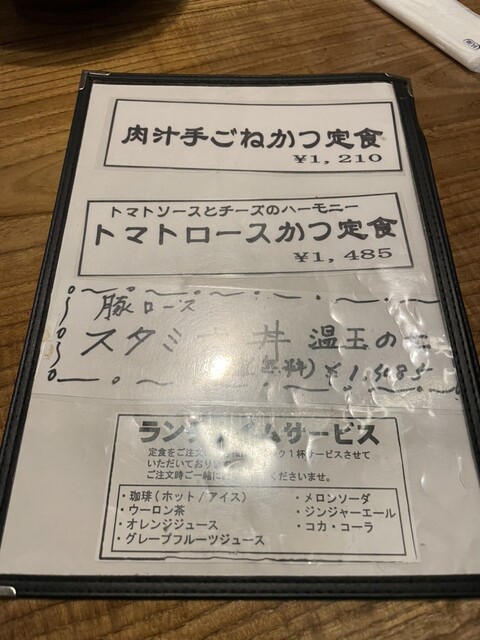 肉汁手ごねかつ定食
¥1,210
トマトソースとチーズのハーモニー
トマトロースかつ定食
¥1,485
豚ロース
スタミナ丼 温玉の
¥1,485
ランチタイムサービス
定食をご注文 1杯サービスさせて
いただいており
ご注文時ご一緒に くださいませ。
・珈琲(ホット/アイス)
・ウーロン茶
・オレンジジュース
・グレープフルーツジュース
・メロンソーダ
・ジンジャーエール
・コカ・コーラ